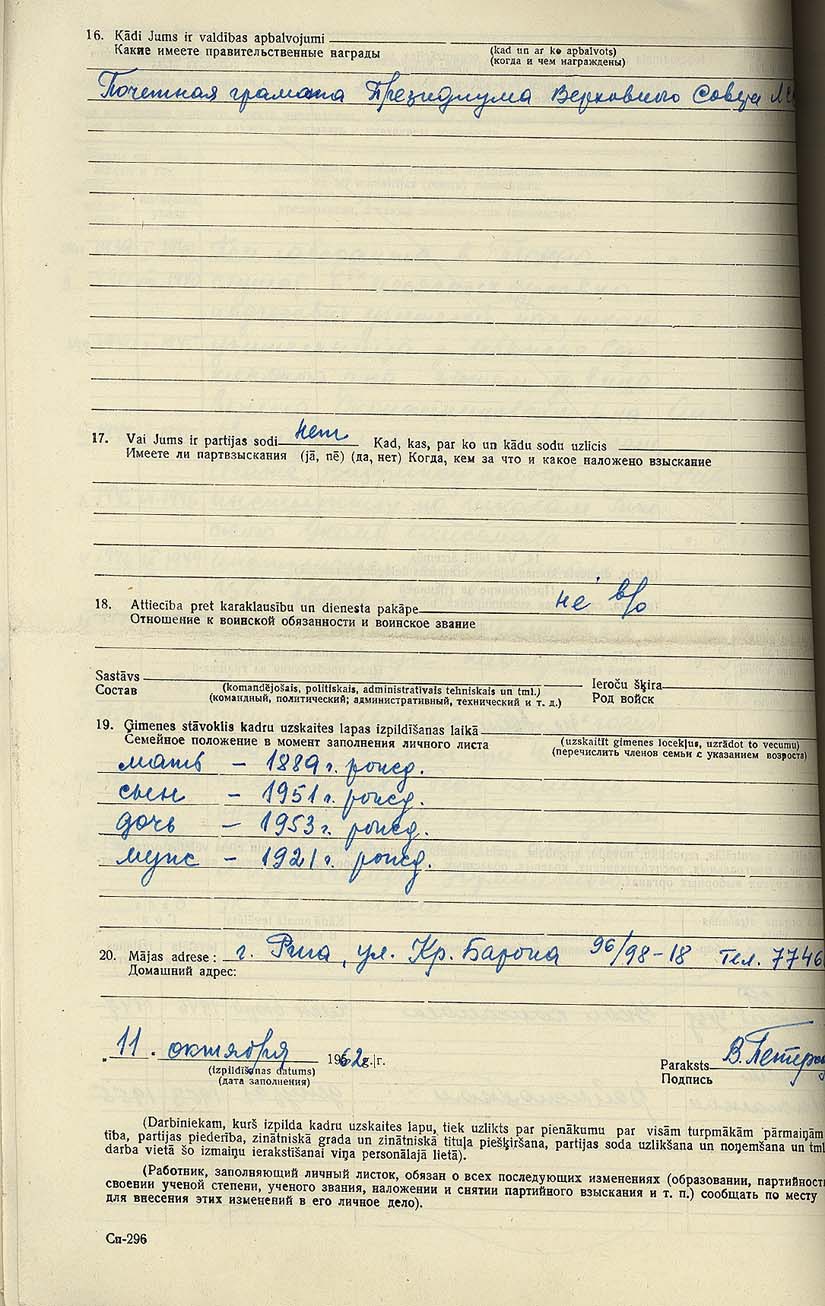 16. Kādi Jums ir valdības apbalvojumi
Какие имеете правительственные награды
(kad un ar ko apbalvots)
(когда и чем награждены)
Почетная грамата Президиума Верховного Совета
17. Vai Jums ir partijas sodi нет Kad, kas, par ko un kādu sodu uzlicis
Имеете ли партвзыскания (jā, nē) (да, нет) Когда, кем за что и какое наложено взыскание
18. Attiecība pret karaklausību un dienesta pakāpe не в/о
Отношение к воинской обязанности и воинское звание
Sastāvs
Состав
(komandējošais, politiskais, administratīvais tehniskais un tml.)
(командный, политический; административный, технический и т. д.)
Ieroču šķira
Род войск
19. Ģimenes stāvoklis kadru uzskaites lapas izpildīšanas laikā
Семейное положение в момент заполнения личного листа
(uzskaitīt ģimenes locekļus, uzrādot to vecumu)
(перечислить членов семьи с указанием возроста)
мать – 1889 г. рожд.
сын – 1951 г. рожд.
дочь – 1953 г. рожд.
муж – 1921 г. рожд.
20. Mājas adrese: г. Рига, ул. Кр. Барона 96/98-18 тел. 7746
Домашний адрес:
11. октября 1962. g. г.
(izpildīšanas datums)
(дата заполнения)
Paraksts В. Петер
Подпись
(Darbiniekam, kurš izpilda kadru uzskaites lapu, tiek uzlikts par pienākumu par visām turpmākām pārmaiņām
tība, partijas piederība, zinātniskā grada un zinātniskā tituļa piešķiršana, partijas soda uzlikšana un noņemšana un tml
darba vietā šo izmaiņu ierakstīšanai viņa personālajā lietā).
(Работник, заполняющий личный листок, обязан о всех последующих изменениях (образовании, партийност
своении ученой степени, ученого звания, наложении и снятии партийного взыскания и т. п.) сообщать по месту
для внесения этих изменений в его личное дело).
Сп-296